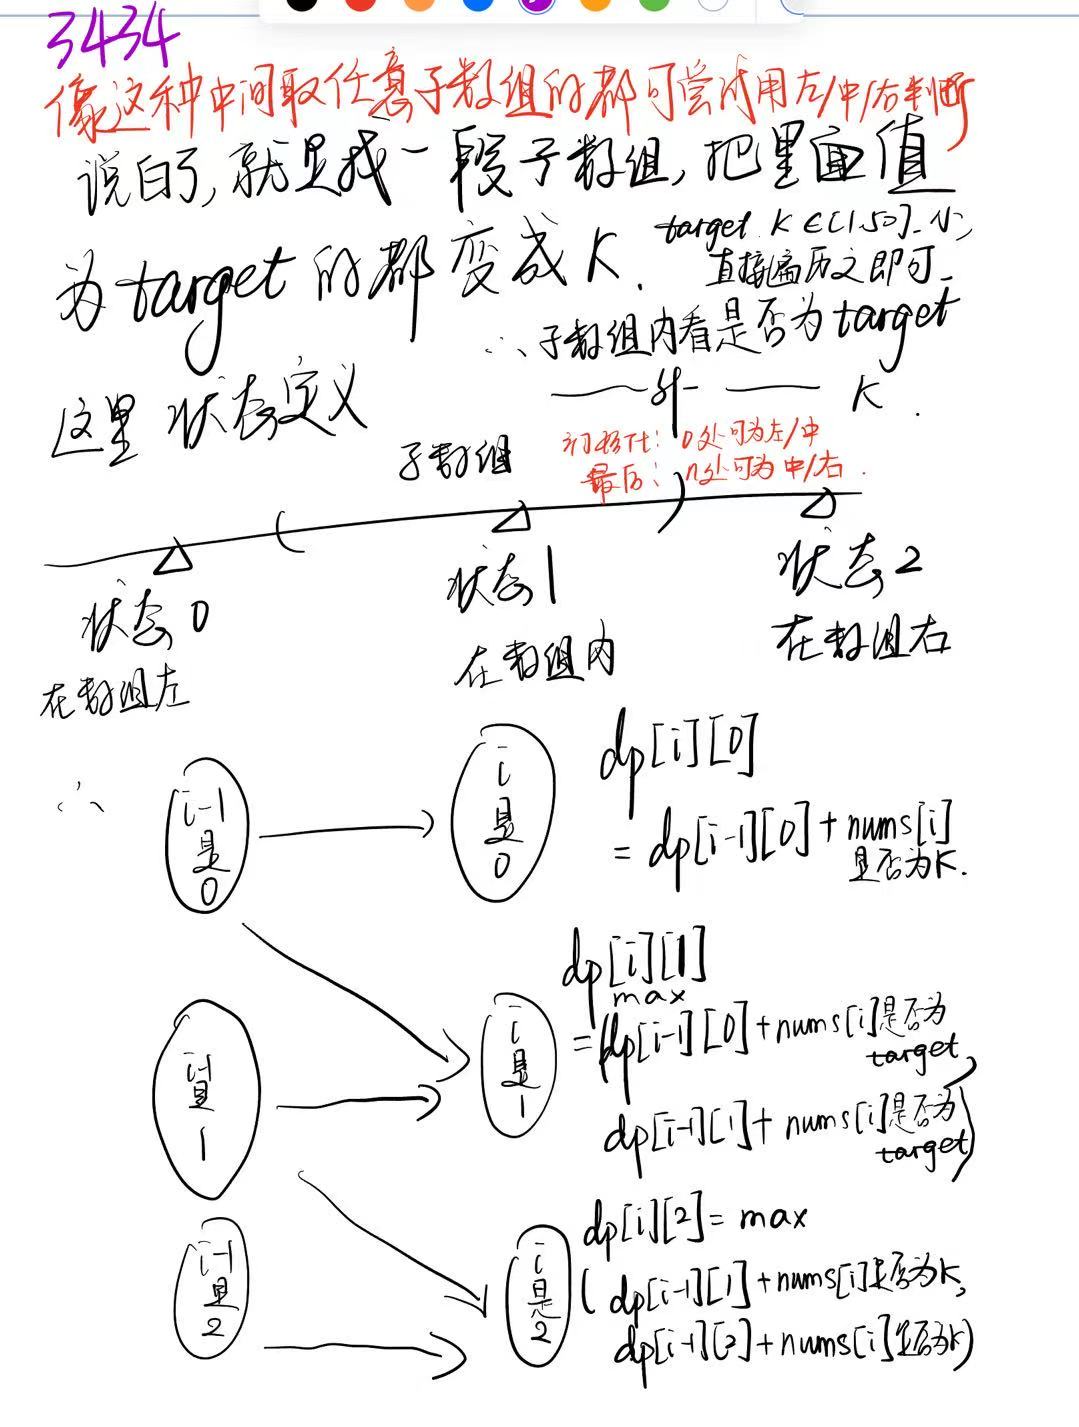 3434
像这种中间取任意子数组的都可尝试用左/中/右判断
说白了,就是找一段子数组,把里面值
为target的都变成K.
target K∈[1,50].小,
直接遍历之即可.
∴子数组内看是否为target
——外—— ——K.
这里状态定义
初始化: 0处可为左/中
最后: n处可为中/右.
子数组
( )
状态0 状态1 状态2
在数组左 在数组内 在数组右
∴
i-1是0
i是0
dp[i][0]
= dp[i-1][0] + nums[i]
是否为K.
i-1是1
i是1
dp[i][1]
max
=(dp[i-1][0]+nums[i]是否为
target,
dp[i-1][1]+nums[i]是否为
target)
i-1是2
i是2
dp[i][2]= max
(dp[i-1][1]+nums[i]是否为K,
dp[i-1][2]+nums[i]是否为K)